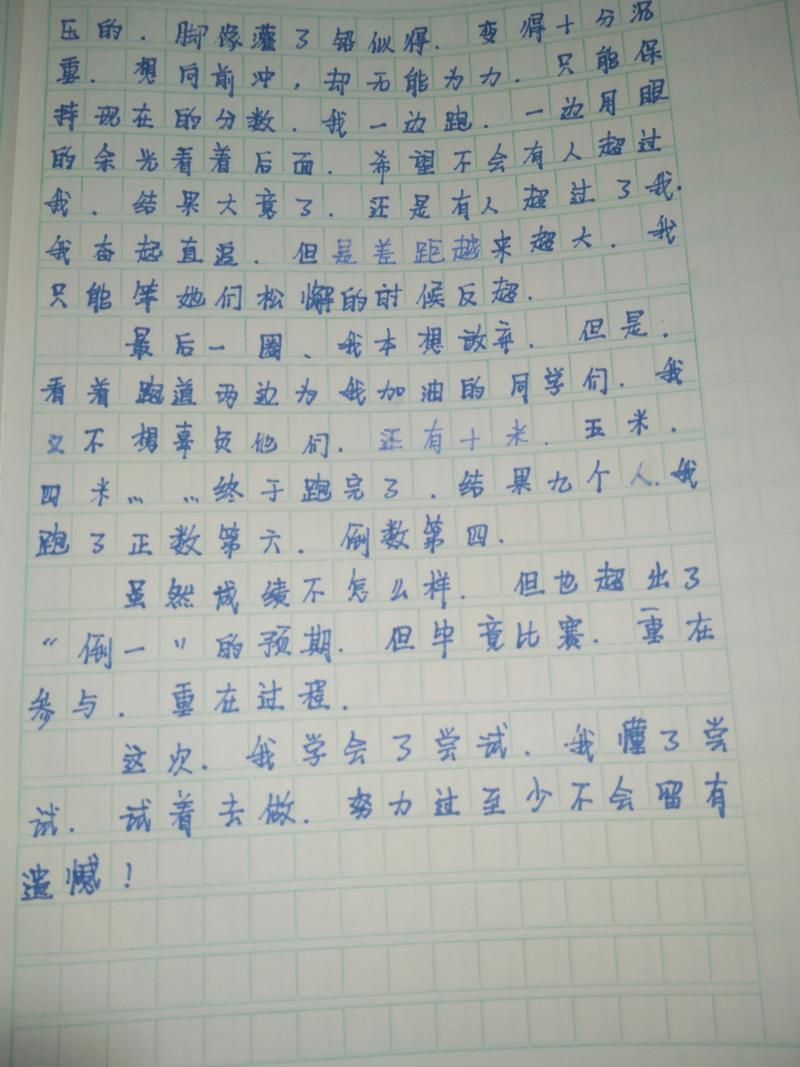 压的.脚像灌了铅似得.变得十分沉
重.想向前冲,却无能为力.只能保
持现在的分数.我一边跑.一边用眼
的余光看着后面.希望不会有人超过
我.结果大竟了.还是有人超过了我.
我奋起直追.但是差距越来超大.我
只能等她们松懈的时候反超.
最后一圈、我本想放弃.但是.
看着跑道两边为我加油的同学们.我
又不想辜负他们.还有十米.五米.
四米……终于跑完了.结果九个人.我
跑了正数第六.倒数第四.
虽然成绩不怎么样.但也超出了
“倒一”的预期.但毕竟比赛.重在
参与.重在过程.
这次.我学会了尝试.我懂了尝
试.试着去做.努力过至少不会留有
遗憾!